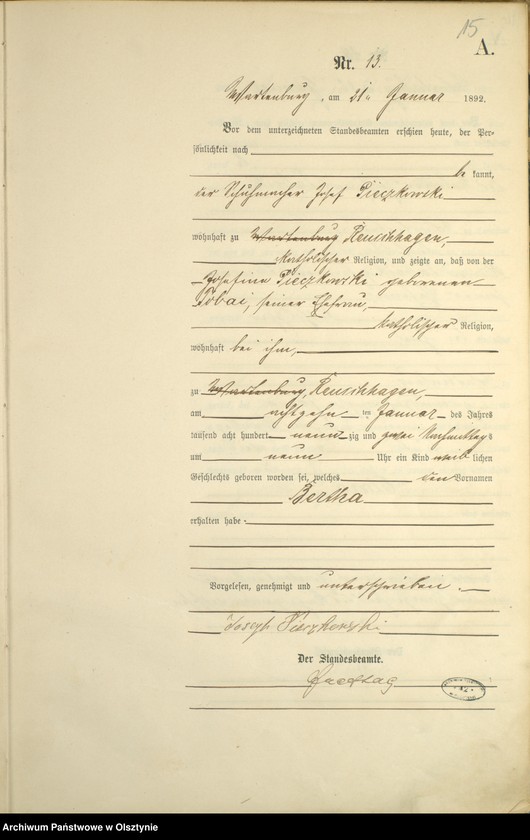 15
A.
Nr. 13.
Wartenburg, am 21ten Januar 1892.
Vor dem unterzeichneten Standesbeamten erschien heute, der Per-
sönlichkeit nach
be kannt,
der Schuhmacher Josef Pieczkowski
wohnhaft zu Wartenburg Reuschhagen,
katholischer Religion, und zeigte an, daß von der
Josefina Pieczkowski geborenen
seiner Ehefrau
katholischer Religion,
wohnhaft bei ihm,
zu Wartenburg, Reuschhagen,
am achtzehn ten Januar des Jahres
tausend acht hundert neun zig und zwei Nachmittags
um neun Uhr ein Kind weib lichen
Geschlechts geboren worden sei, welches den Vornamen
Bertha
erhalten habe.
Vorgelesen, genehmigt und unterschrieben.
Joseph Pieczkowski
Der Standesbeamte.
Archiwum Państwowe w Olsztynie